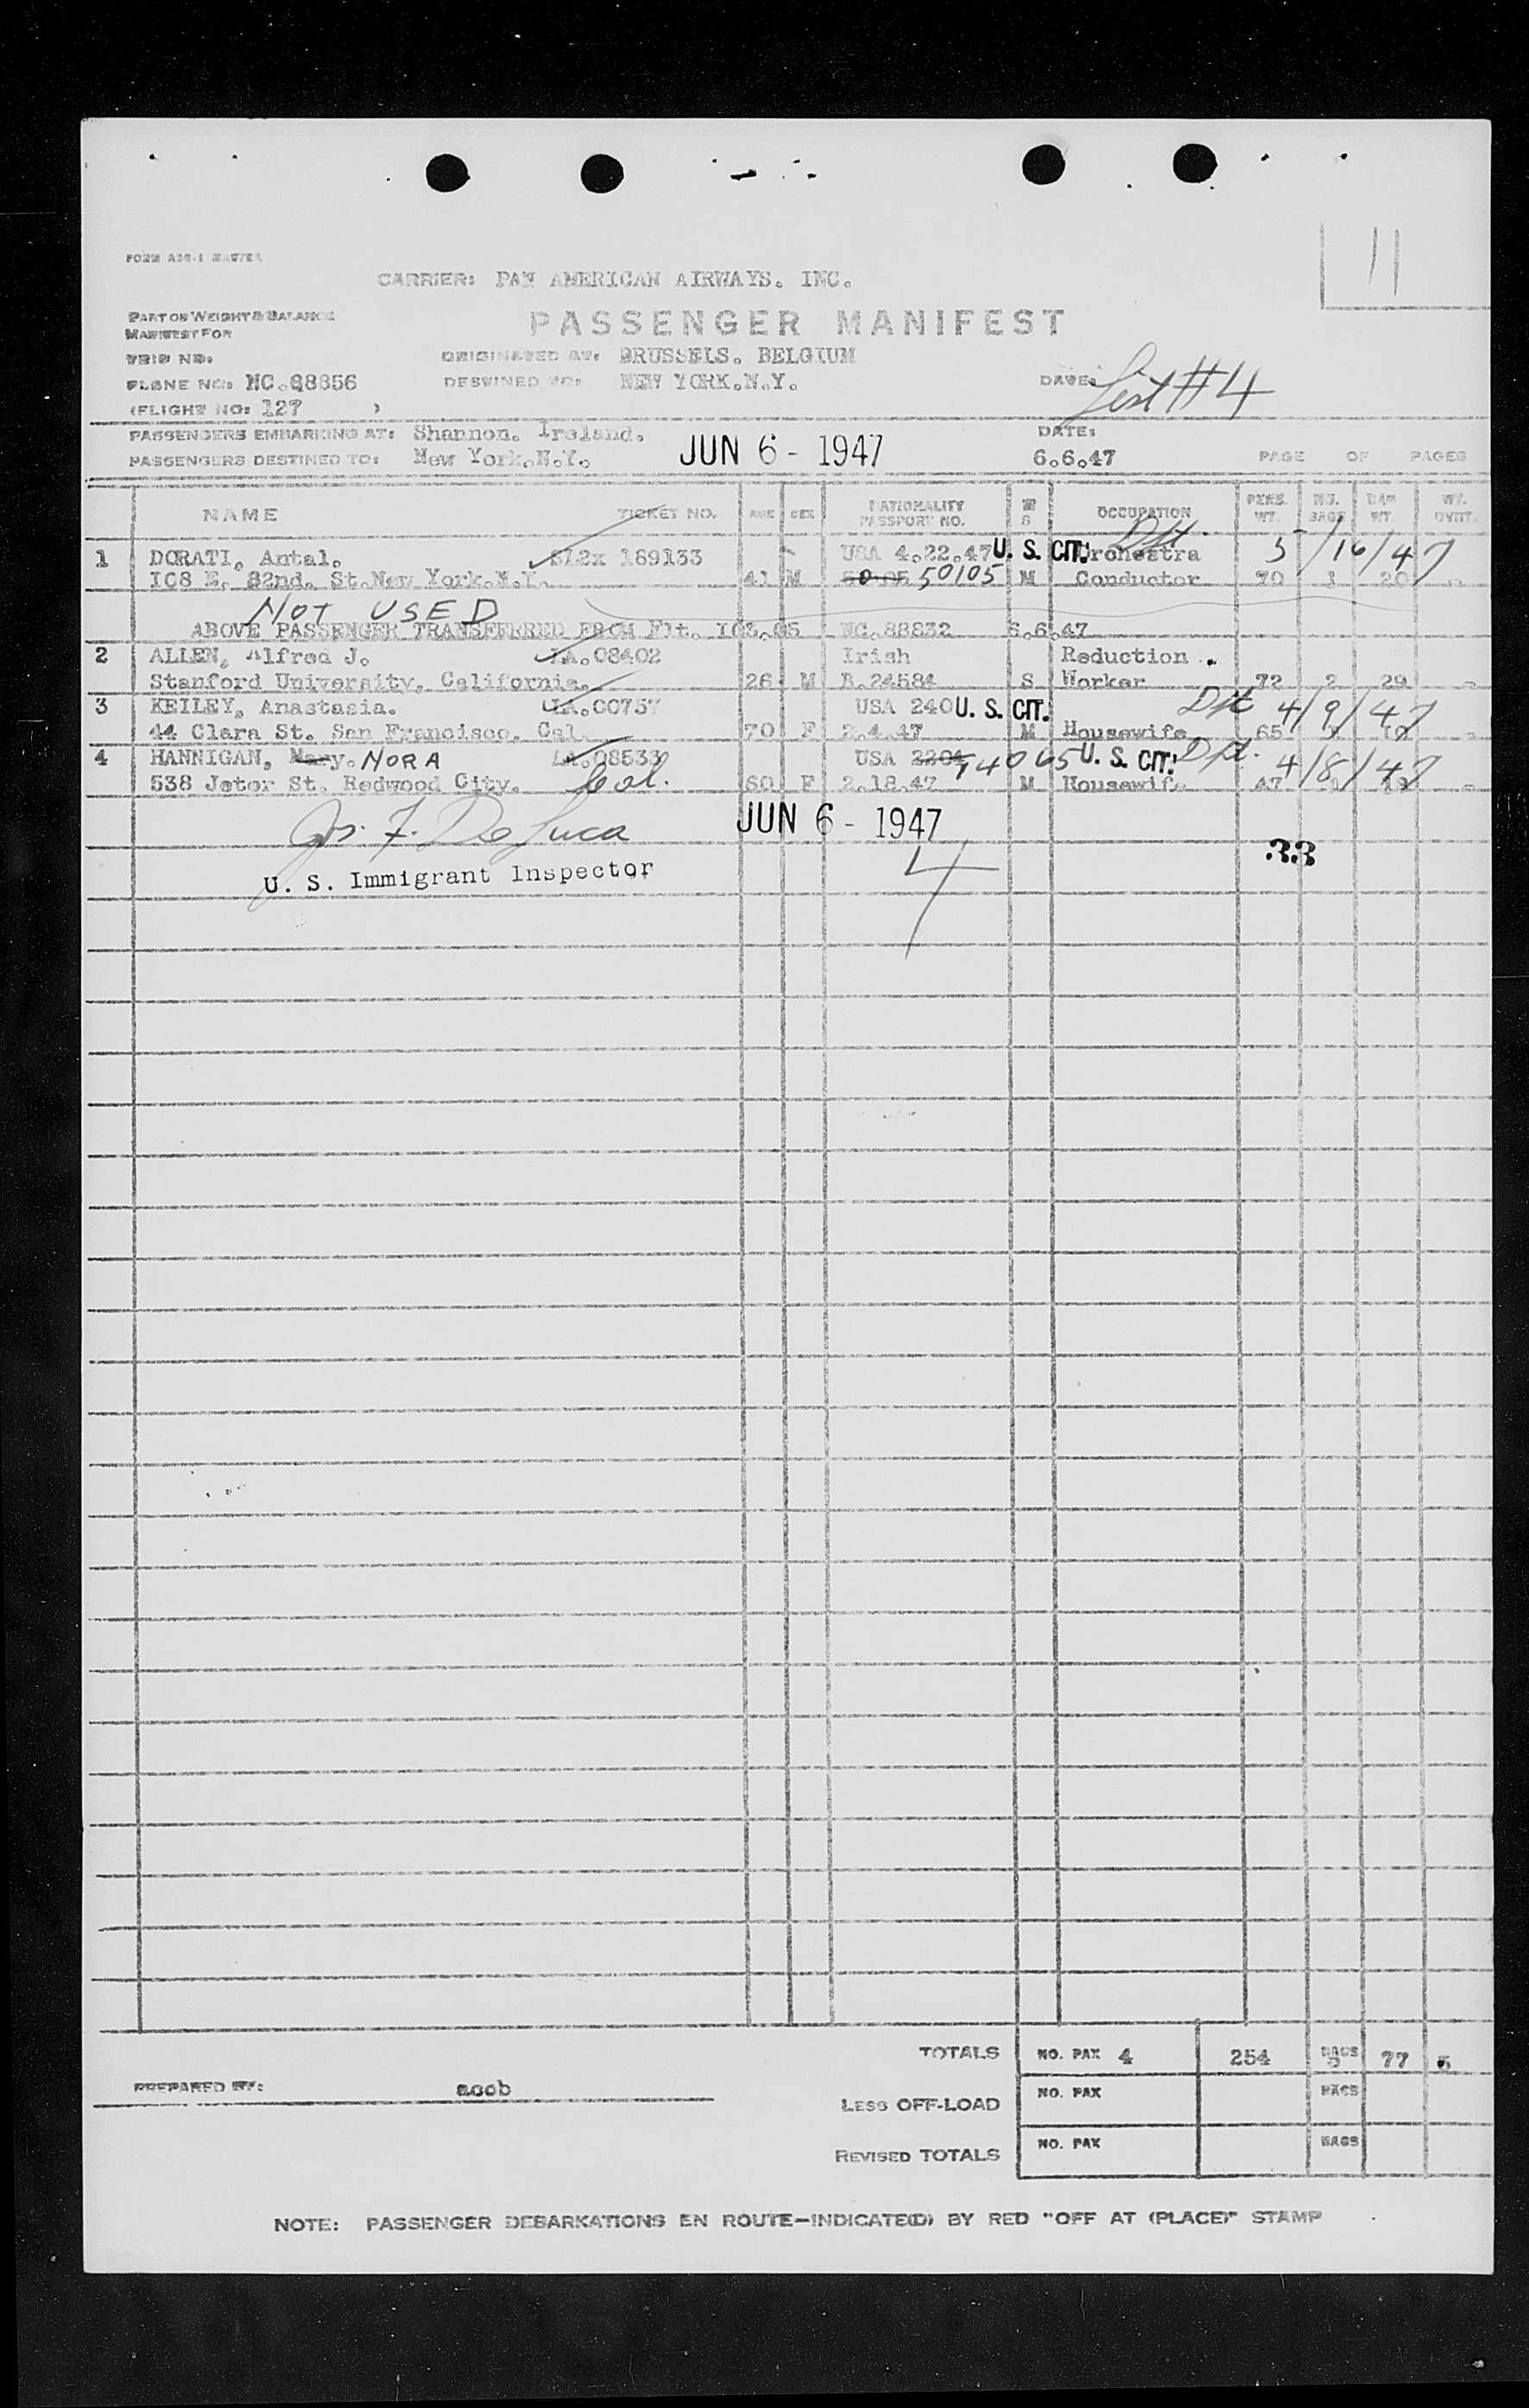 FORM ADG-1 MASTER
11
CARRIER: PAN AMERICAN AIRWAYS. INC.
PART OR WEIGHT & BALANCE
MANIFEST FOR
PASSENGER MANIFEST
TRIP NO:
ORIGINATED AT: BRUSSELS. BELGIUM
PLANE NO: NC.88856
DESTINED TO: NEW YORK.N.Y.
DATE: List #4
(FLIGHT NO: 127 )
PASSENGERS EMBARKING AT: Shannon. Ireland.
DATE:
PASSENGERS DESTINED TO: New York.N.Y.
JUN 6 - 1947
6.6.47
PAGE OF PAGES
NAME TICKET NO. AGE SEX NATIONALITY PASSPORT NO. M S OCCUPATION PERS. WT. NO. BAGS BAG WT. WT. OVRT.
1 DORATI, Antal. 189133 USA 4.22.47 U. S. CIT. Orchestra Dpt. 5/16/47
108 E. 82nd. St.New York.N.Y. 41 M 50105 M Conductor 70 1 20 -
NOT USED
ABOVE PASSENGER TRANSFERRED FROM Flt. NC.88832 6.6.47
2 ALLEN, Alfred J. LA.08402 Irish Reduction
Stanford University, California. 26 M A.24584 S Worker 72 2 29 -
3 KEILEY, Anastasia. LA.00757 USA 240 U. S. CIT. Dpt 4/9/47
44 Clara St. San Francisco. Cal. 70 F 2.4.47 M Housewife 65
4 HANNIGAN, Mary. NORA LA.08533 USA 2204 74065 U. S. CIT. Dpt. 4/8/47
538 Jeter St. Redwood City. Cal. 60 F 2.18.47 M Housewife 47 -
Jos. F. De Luca
JUN 6 - 1947
U. S. Immigrant Inspector
4
33
TOTALS NO. PAX 4 254 BAGS 5 77 5
PREPARED BY: acob
LESS OFF-LOAD NO. PAX BAGS
REVISED TOTALS NO. PAX BAGS
NOTE: PASSENGER DEBARKATIONS EN ROUTE-INDICATE(D) BY RED "OFF AT (PLACE)" STAMP